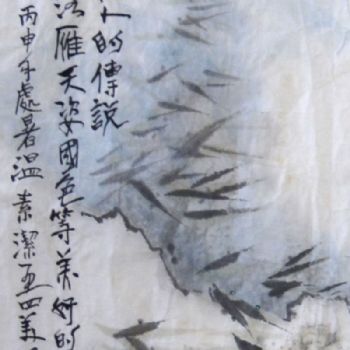 人的傳說
落雁天姿國色等美好的
丙申年處暑溫素潔四美